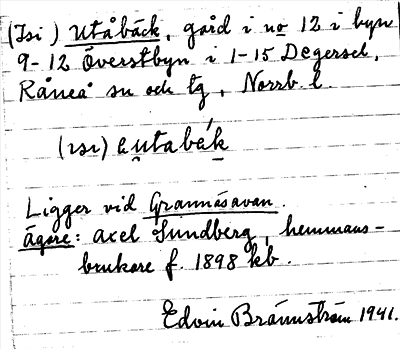 (Isi) Utåbäck, gård i no 12 i byn
9-12 Överstbyn i 1-15 Degersel,
Råneå sn och tg, Norrb. l.
(ısı) ęutabék
Ligger vid Grannäsavan.
Ägare: Axel Sundberg, hemmans-
brukare f. 1898 kb.
Edvin Brännström 1941.